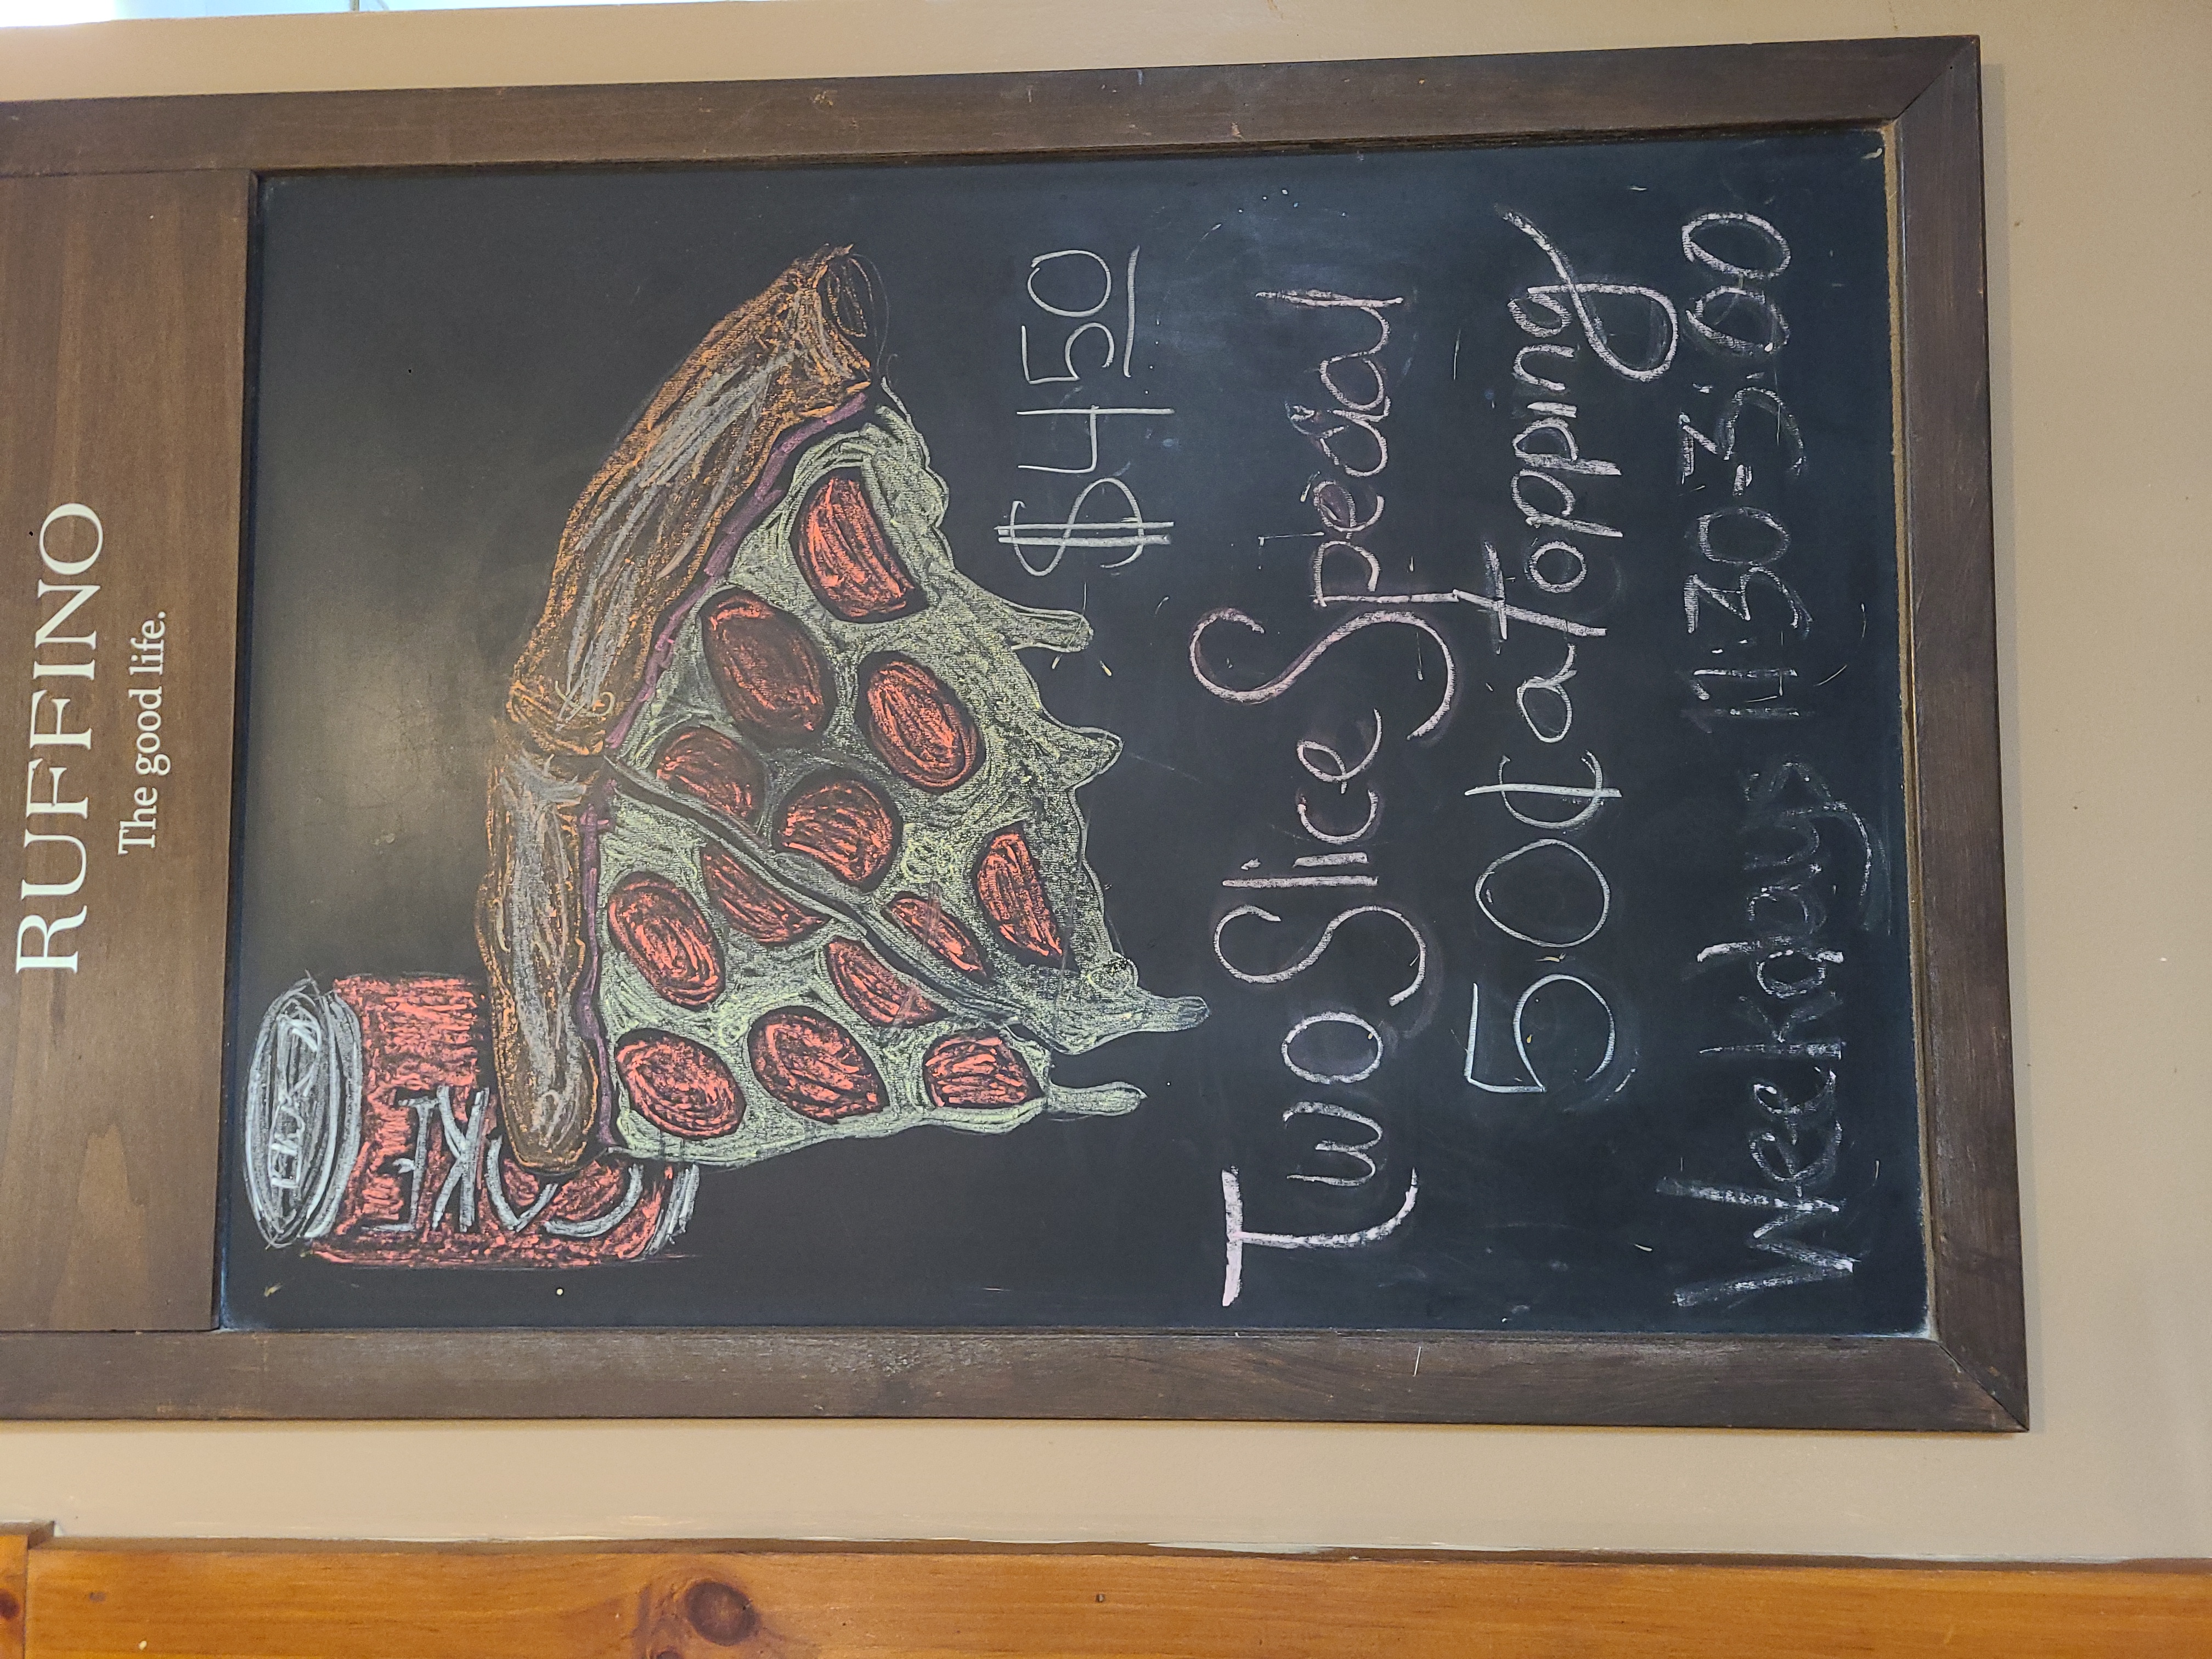 RUFFINO
The good life.
COKE
$4 50
Two Slice Special
50¢ a topping
Weekdays 11:30-3:00